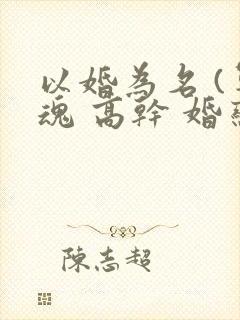 以婚為名(
魂 高幹 婚
陳志超